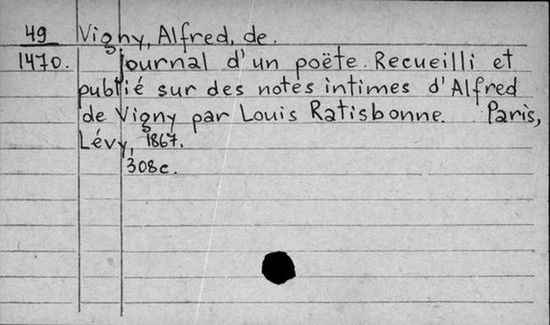 49 Vigny, Alfred, de.
1470. Journal d'un poëte. Recueilli et
publié sur des notes intimes d'Alfred
de Vigny par Louis Ratisbonne. Paris,
Lévy, 1867.
308c.